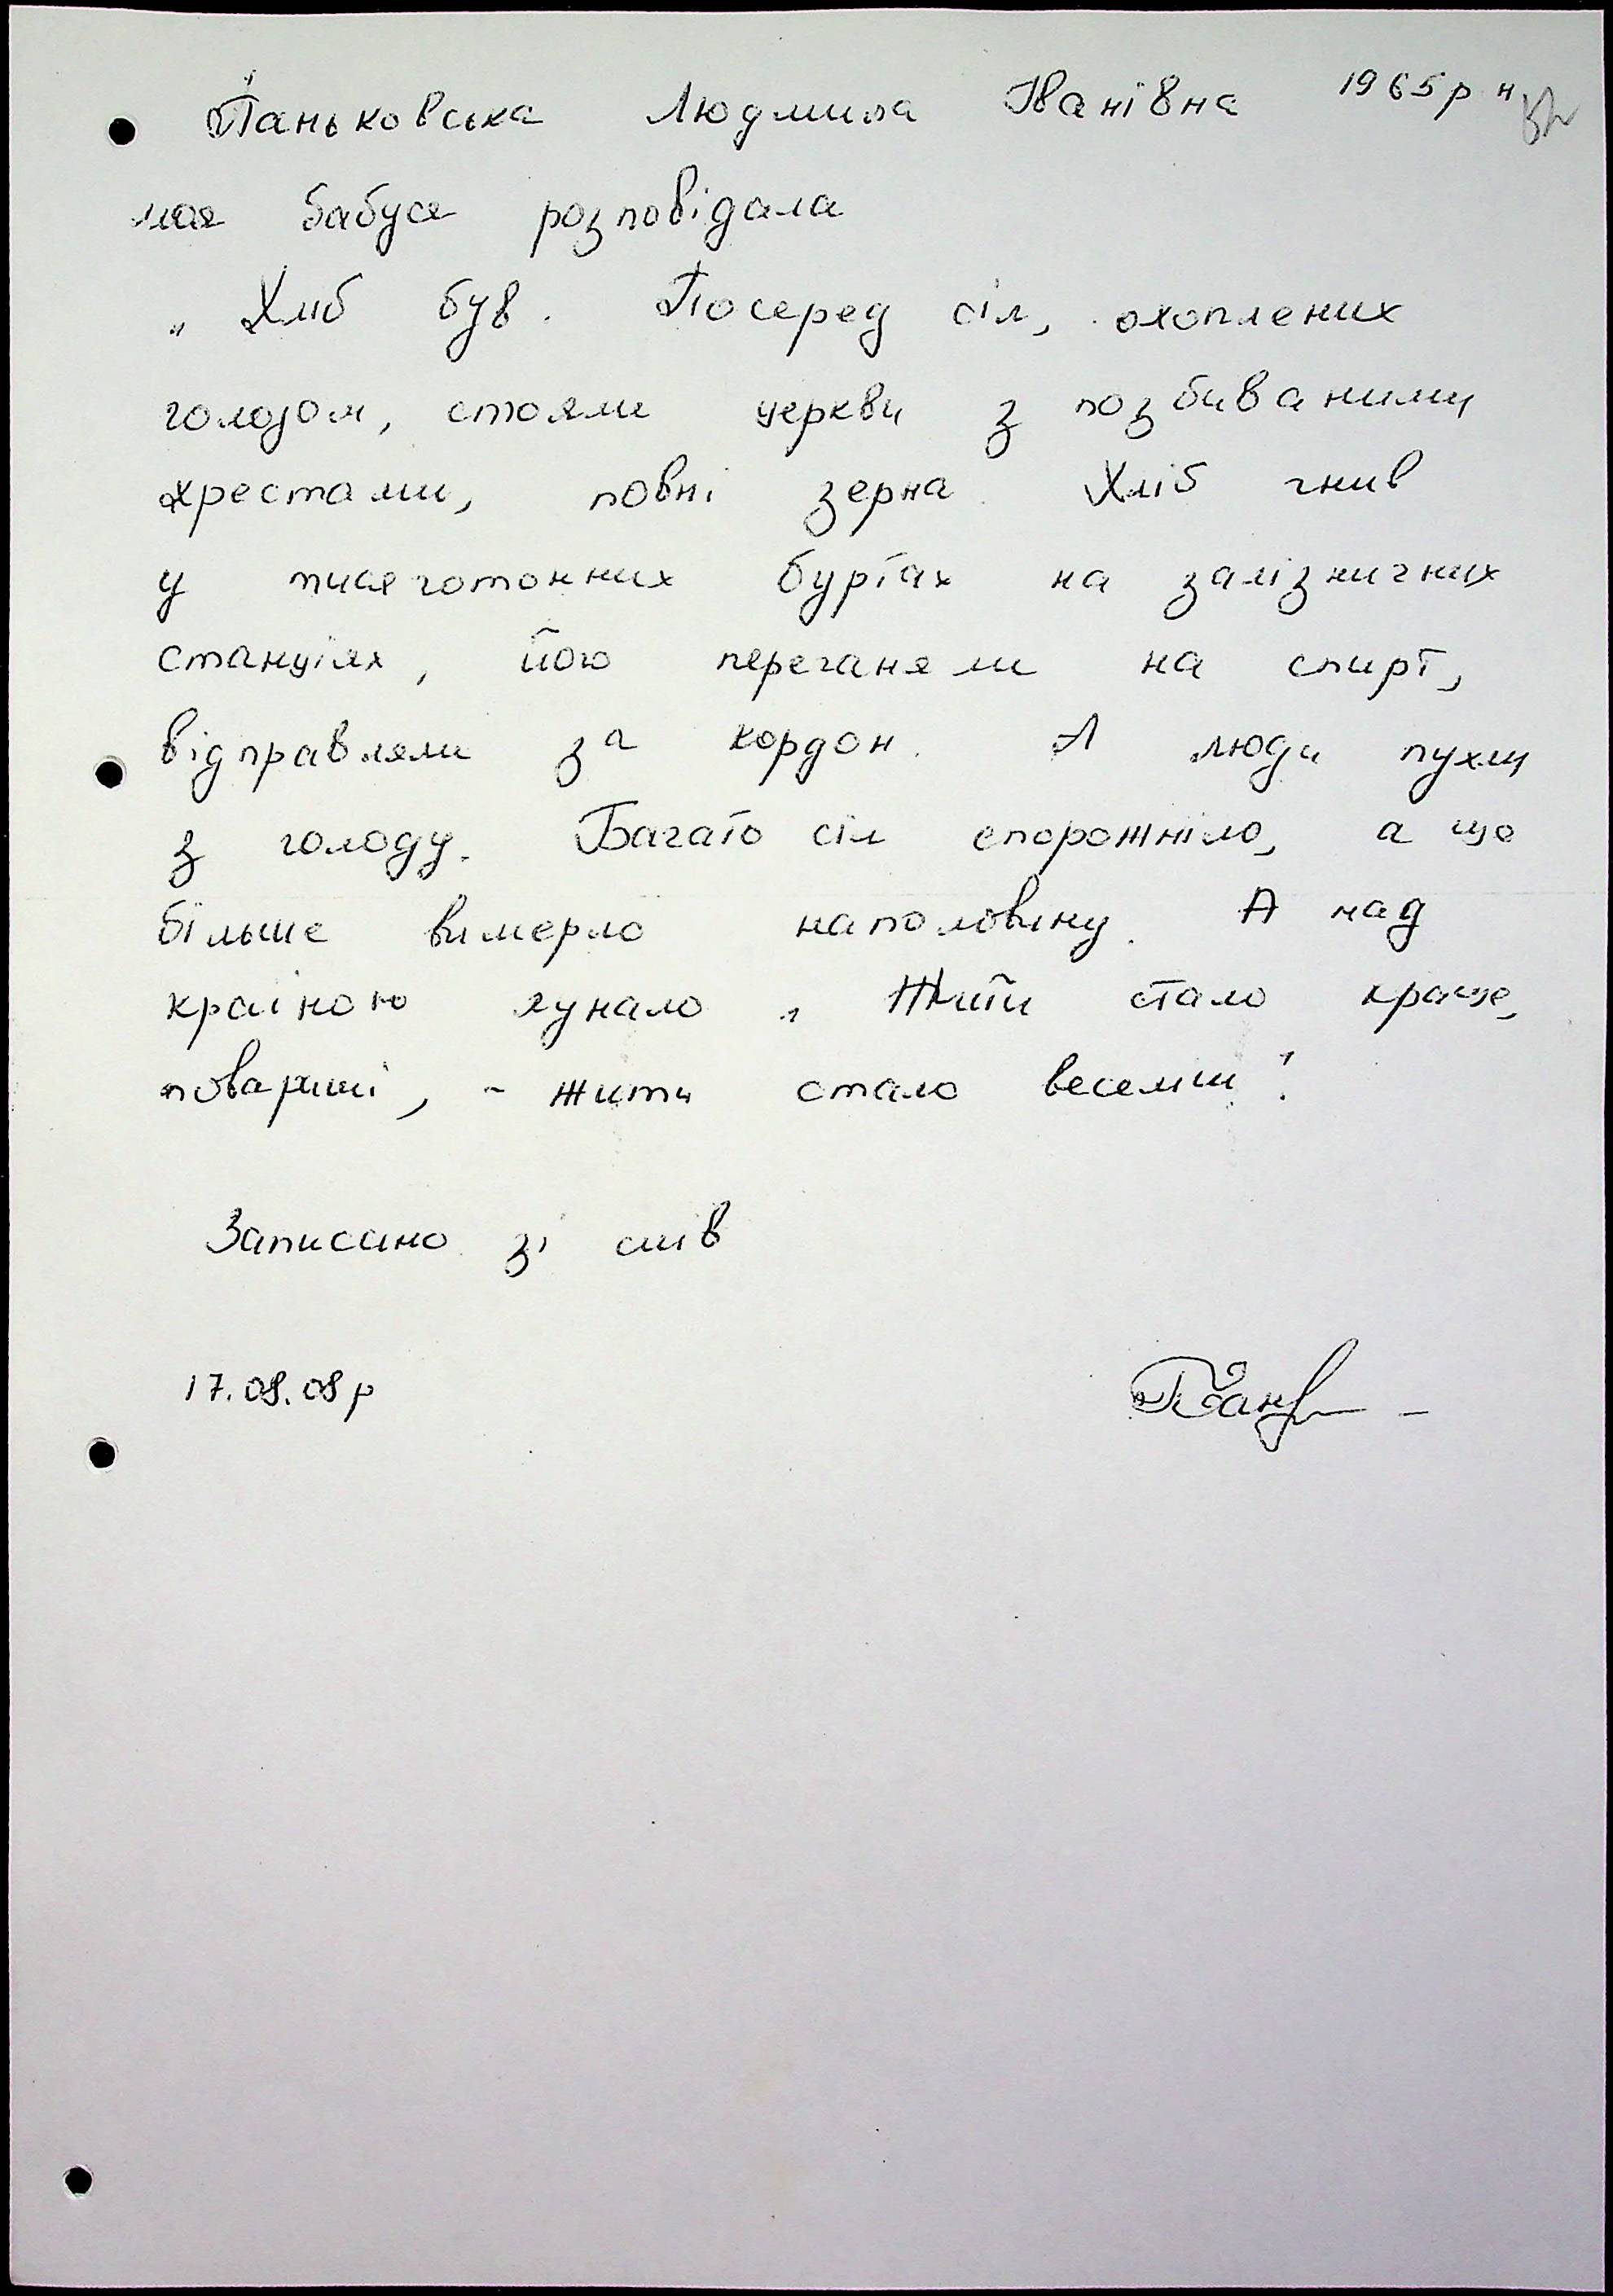 Паньковська Людмила Іванівна 1965 р н
моя бабуся розповідала
„ Хліб був. Посеред сіл, охоплених
голодом, стояли церкви з позбиваними
хрестами, повні зерна. Хліб гнив
у тисячотонних буртах на залізничних
станціях, його переганяли на спирт,
відправляли за кордон. А люди пухли
з голоду. Багато сіл спорожніло, а ще
більше вимерло наполовину. А над
країною лунало „ Жити стало краще,
товариші, - жити стало веселіш"!
Записано зі слів
17.08.08 р